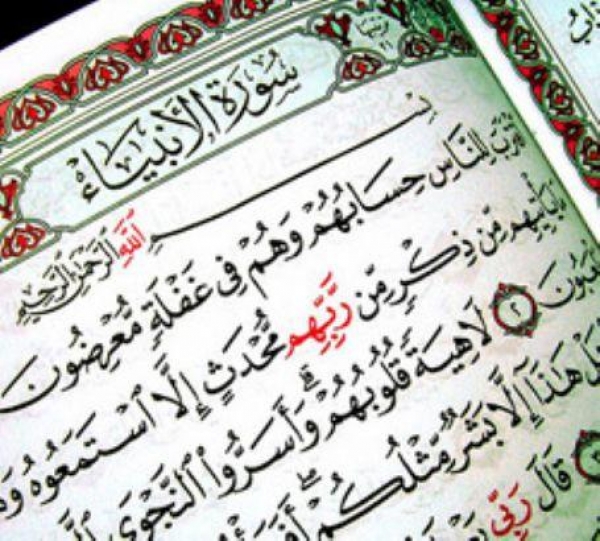 سُورَةُ الأَنبِيَاءِ
بِسْمِ اللَّهِ الرَّحْمَٰنِ الرَّحِيمِ
لِلنَّاسِ حِسَابُهُمْ وَهُمْ فِى غَفْلَةٍ مُّعْرِضُونَ
يَأْتِيهِم مِّن ذِكْرٍ مِّن رَّبِّهِم مُّحْدَثٍ إِلَّا ٱسْتَمَعُوهُ
٢ لَاهِيَةً قُلُوبُهُمْ وَأَسَرُّوا۟ ٱلنَّجْوَى
هَٰذَآ إِلَّا بَشَرٌ مِّثْلُكُمْ
قَالَ رَبِّى